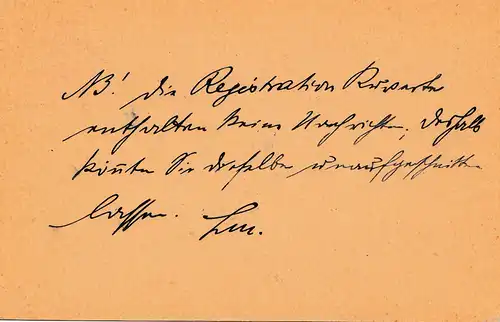 NB! Die Registration Kuverte
enthalten keine Nachrichten, deshalb
könnten Sie dieselbe unaufgeschnitten
lassen.